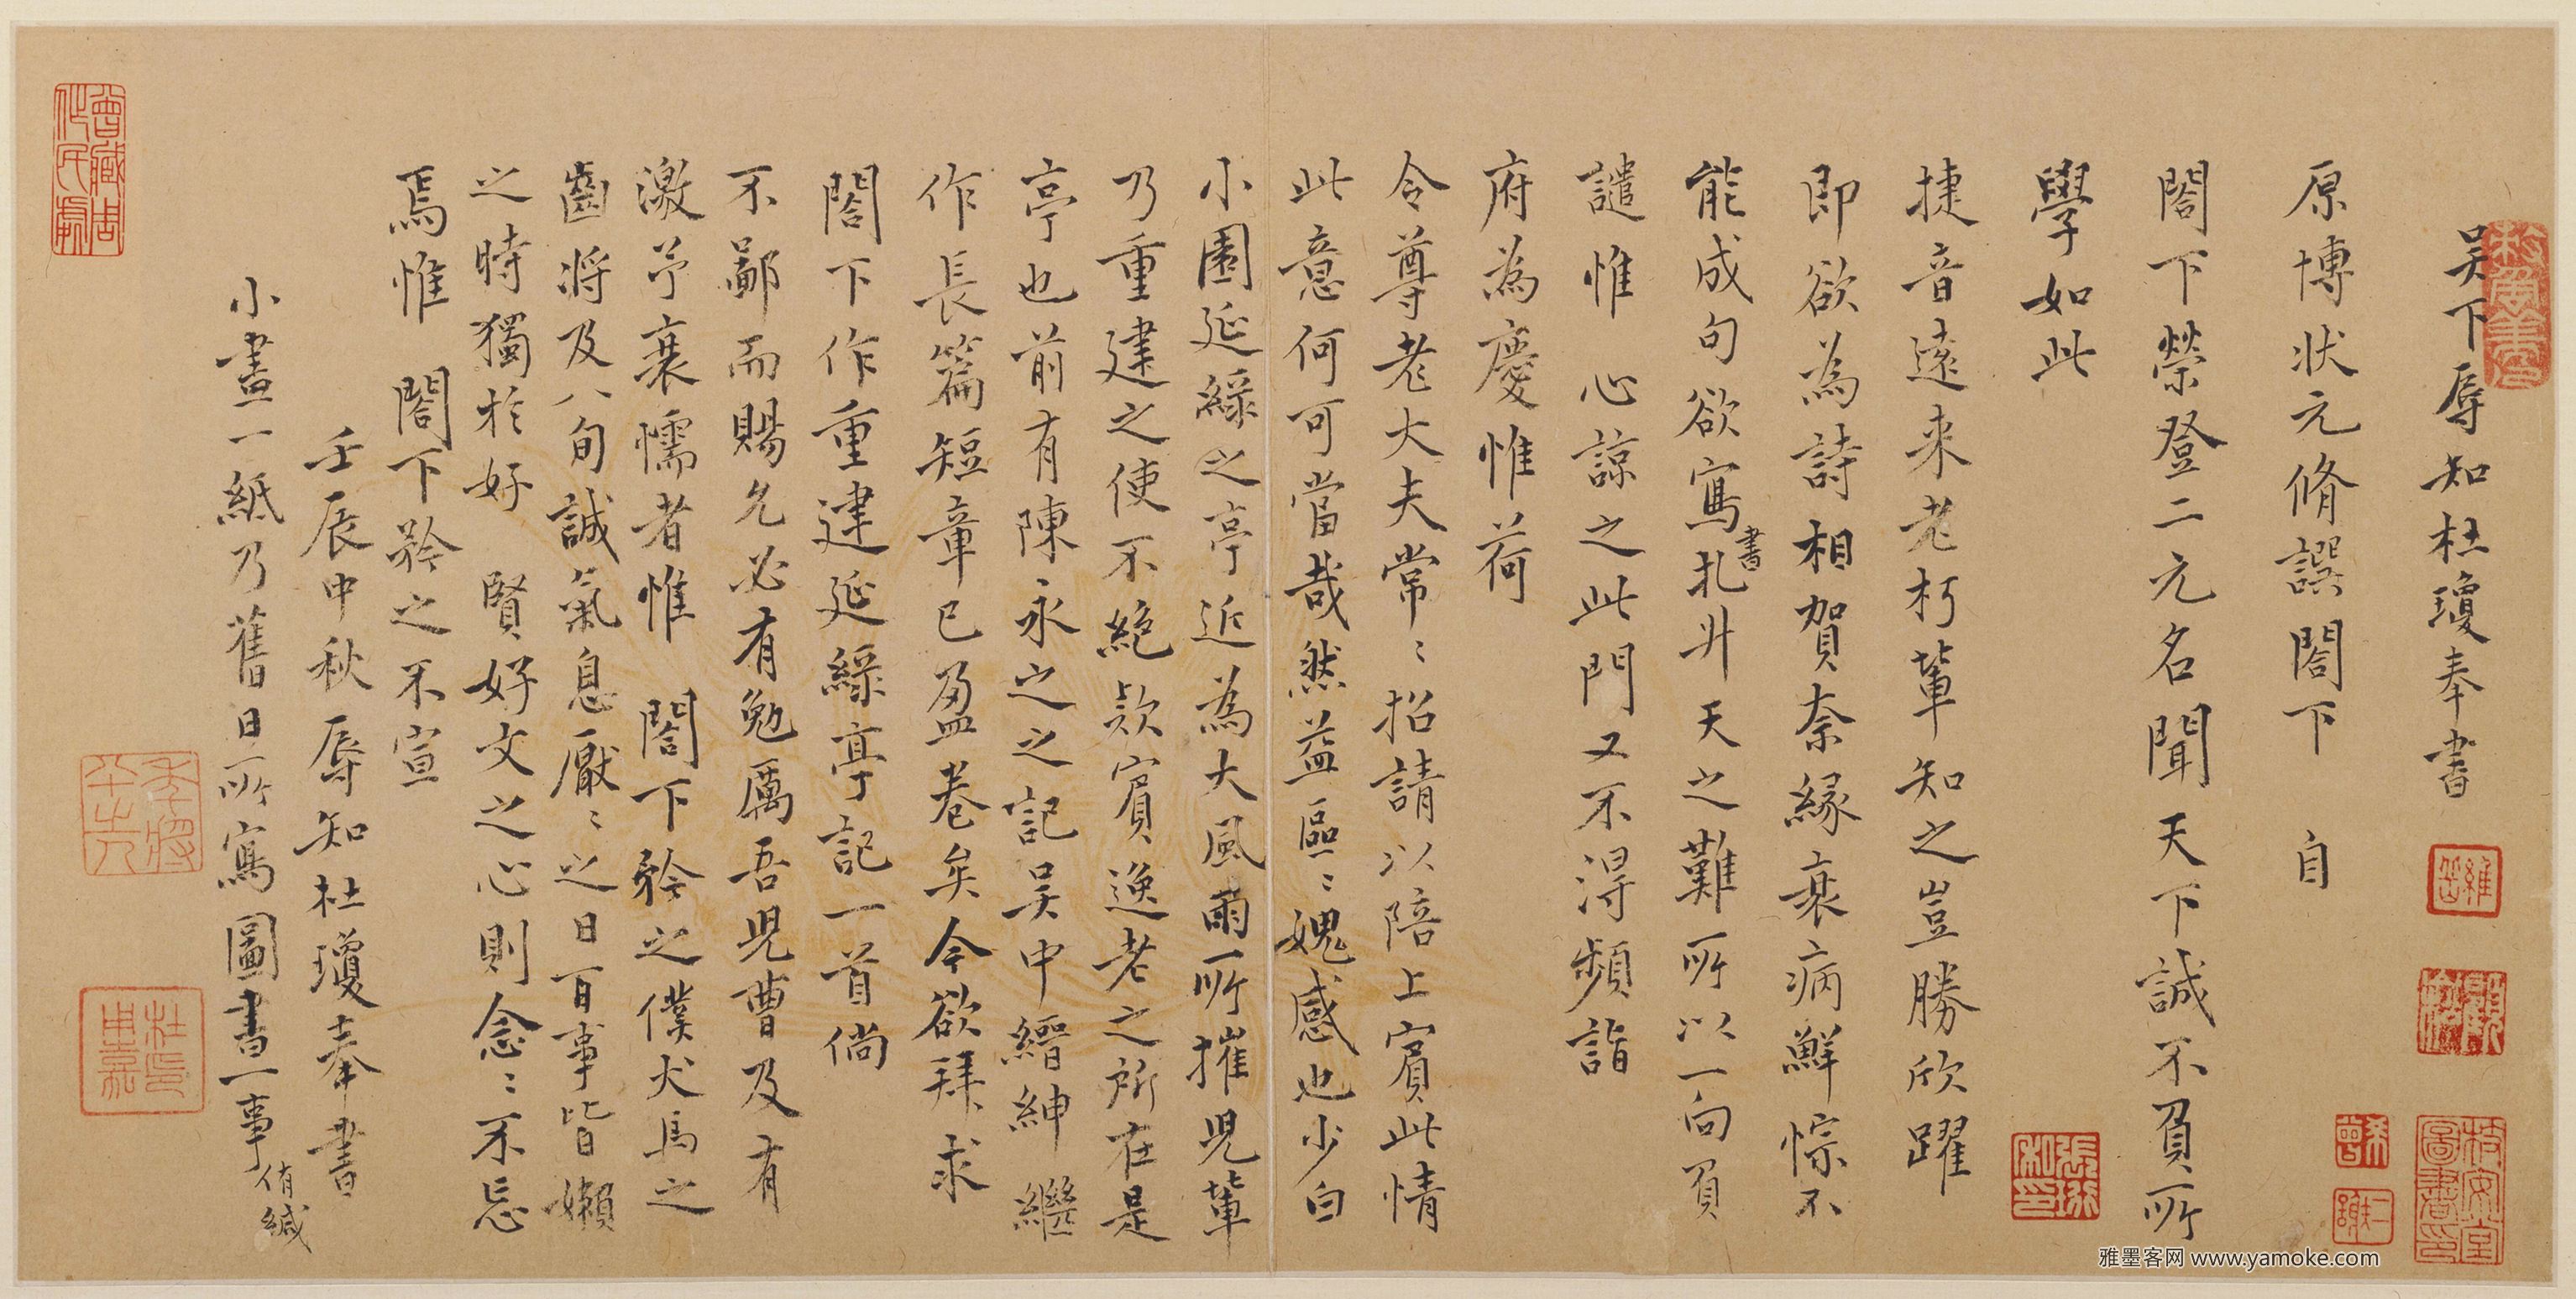 吳下辱知杜瓊奉書
原博狀元脩譔閤下 自
閤下榮登二元名聞天下誠不負所
學如此
捷音遠來老朽輩知之豈勝欣躍
即欲為詩相賀奈緣衰病鮮悰不
能成句欲寫書扎升天之難所以一向負
譴惟心諒之此門又不得頻詣
府為慶惟荷
令尊老大夫常〻招請以陪上賓此情
此意何可當哉然益區〻媿感也少白
小園延綠之亭近為大風雨所摧兒輩
乃重建之使不絕欵賓逸老之所在是
亭也前有陳永之之記吳中縉紳繼
作長篇短章已盈卷矣今欲拜求
閤下作重建延綠亭記一首倘
不鄙而賜允必有勉厲吾兒曹及有
激予衰懦者惟 閤下矜之僕犬馬之
齒將及八旬誠氣息厭〻之日百事皆嬾
之時獨於好 賢好文之心則念〻不忘
焉惟 閤下矜之不宣
壬辰中秋辱知杜瓊奉書
小畫一紙乃舊日所寫圖畫一事侑緘
雅墨客网 www.yamoke.com